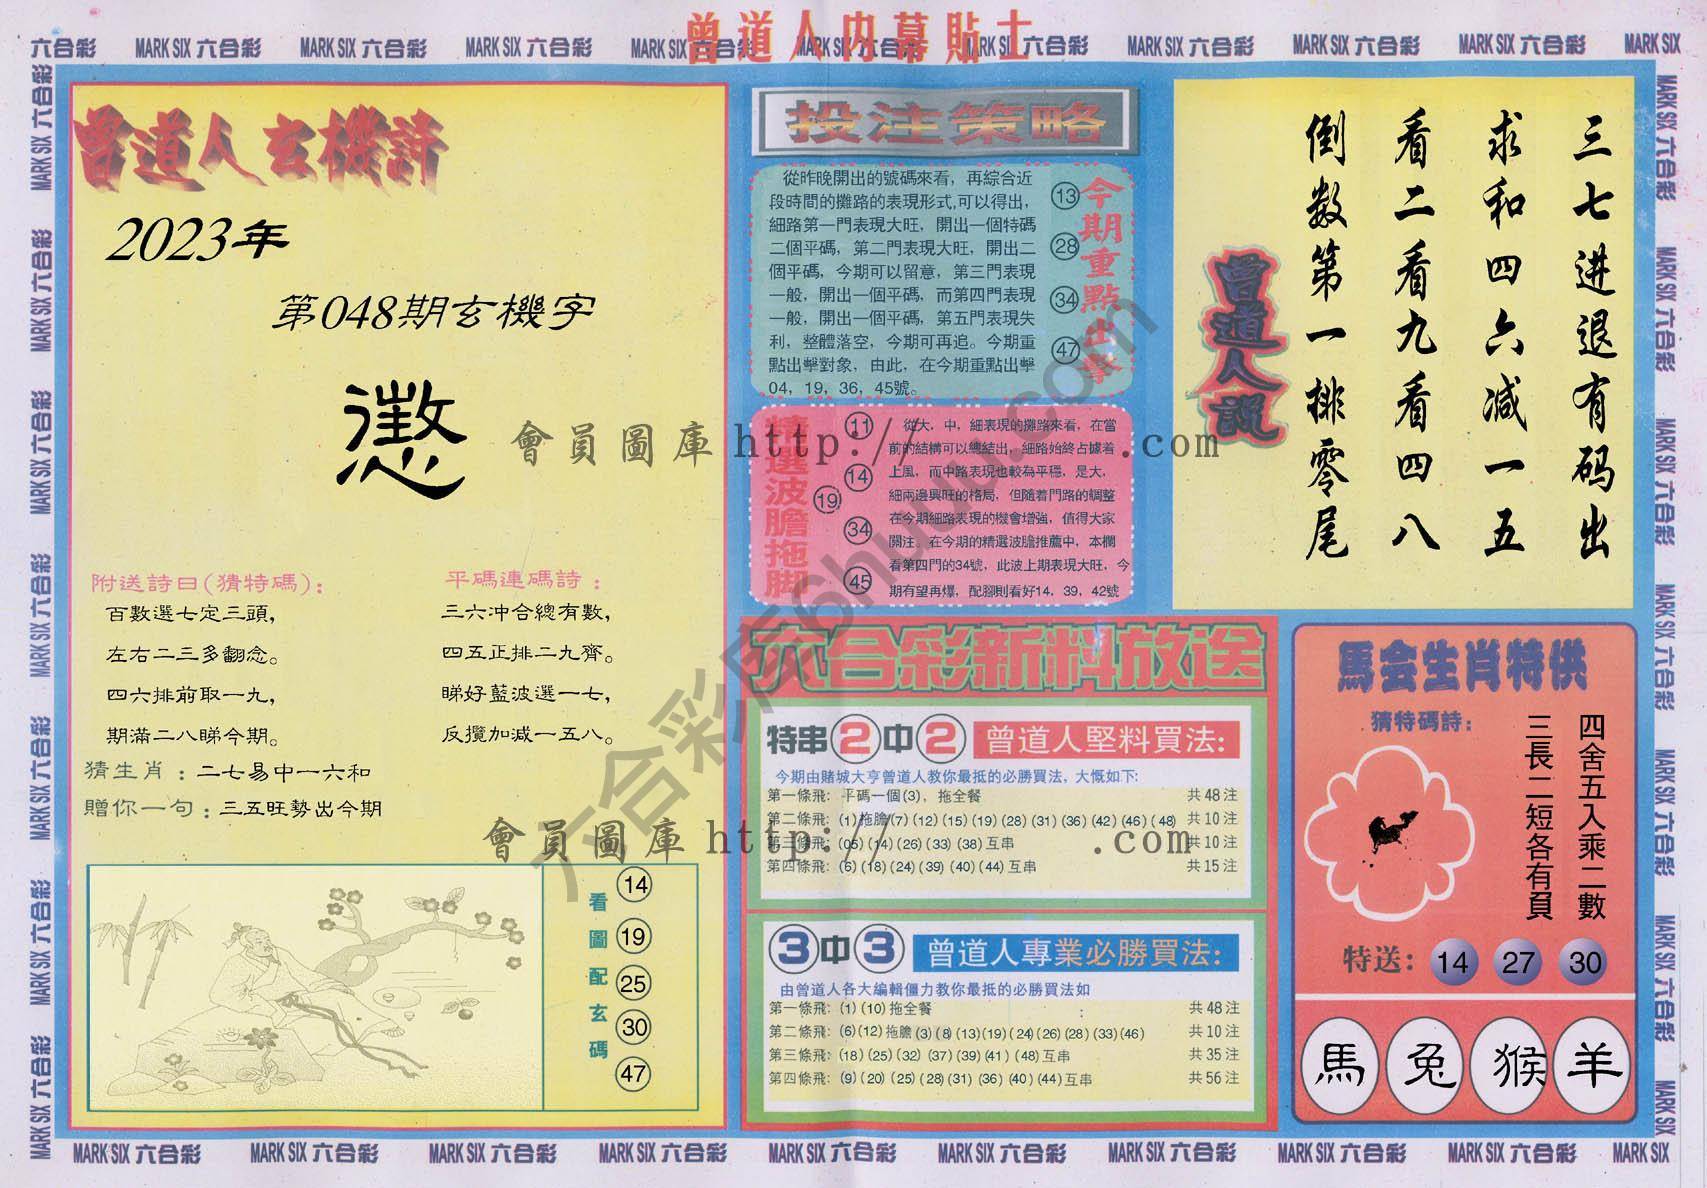 曾道人内幕貼士
六合彩 MARK SIX 六合彩 MARK SIX 六合彩 MARK SIX 六合彩 MARK SIX 六合彩 MARK SIX 六合彩 MARK SIX 六合彩 MARK SIX 六合彩 MARK SIX 六合彩 MARK SIX 六合彩 MARK SIX
曾道人玄機詩
2023年
第048期玄機字
懲
附送詩曰(猜特碼):
百數選七定三頭,
左右二三多翻念。
四六排前取一九,
期滿二八睇今期。
平碼連碼詩:
三六冲合總有數,
四五正排二九齊。
睇好藍波選一七,
反攬加減一五八。
猜生肖:二七易中一六和
贈你一句:三五旺勢出今期
看圖配玄碼
14
19
25
30
47
投注策略
從昨晚開出的號碼來看，再綜合近
段時間的攤路的表現形式,可以得出，
細路第一門表現大旺，開出一個特碼
二個平碼，第二門表現大旺，開出二
個平碼，今期可以留意，第三門表現
一般，開出一個平碼，而第四門表現
一般，開出一個平碼，第五門表現失
利，整體落空，今期可再追。今期重
點出擊對象，由此，在今期重點出擊
04，19，36，45號。
今期重點出擊
13
28
34
47
精選波膽拖脚
11
14
19
34
45
從大，中，細表現的攤路來看，在當
前的結構可以總結出，細路始終占據着
上風，而中路表現也較為平穩，是大，
細兩邊興旺的格局，但隨着門路的調整
在今期細路表現的機會增強，值得大家
關注。在今期的精選波膽推薦中，本欄
看第四門的34號，此波上期表現大旺，今
期有望再爆，配腳則看好14，39，42號
曾道人説
三七进退有码出
求和四六减一五
看二看九看四八
倒数第一排零尾
六合彩新料放送
特串2中2 曾道人堅料買法:
今期由賭城大亨曾道人教你最抵的必勝買法，大慨如下:
第一條飛: 平碼一個(3)，拖全餐 共48注
第二條飛: (1)拖膽(7)(12)(15)(19)(28)(31)(36)(42)(46)(48) 共10注
第三條飛: (05)(14)(26)(33)(38)互串 共10注
第四條飛: (6)(18)(24)(39)(40)(44)互串 共15注
3中3 曾道人專業必勝買法:
由曾道人各大編輯僵力教你最抵的必勝買法如
第一條飛: (1)(10)拖全餐 共48注
第二條飛: (6)(12)拖膽(3)(8)(13)(19)(24)(26)(28)(33)(46) 共10注
第三條飛: (18)(25)(32)(37)(39)(41)(48)互串 共35注
第四條飛: (9)(20)(25)(28)(31)(36)(40)(44)互串 共56注
馬会生肖特供
猜特碼詩:
四舍五入乘二數
三長二短各有頁
特送: 14 27 30
馬 兔 猴 羊
會員圖庫 http:// .com
會員圖庫 http:// .com
六合彩库6huuu.com
MARK SIX 六合彩 MARK SIX 六合彩 MARK SIX 六合彩 MARK SIX 六合彩 MARK SIX 六合彩 MARK SIX 六合彩 MARK SIX 六合彩 MARK SIX 六合彩 MARK SIX 六合彩 MARK SIX